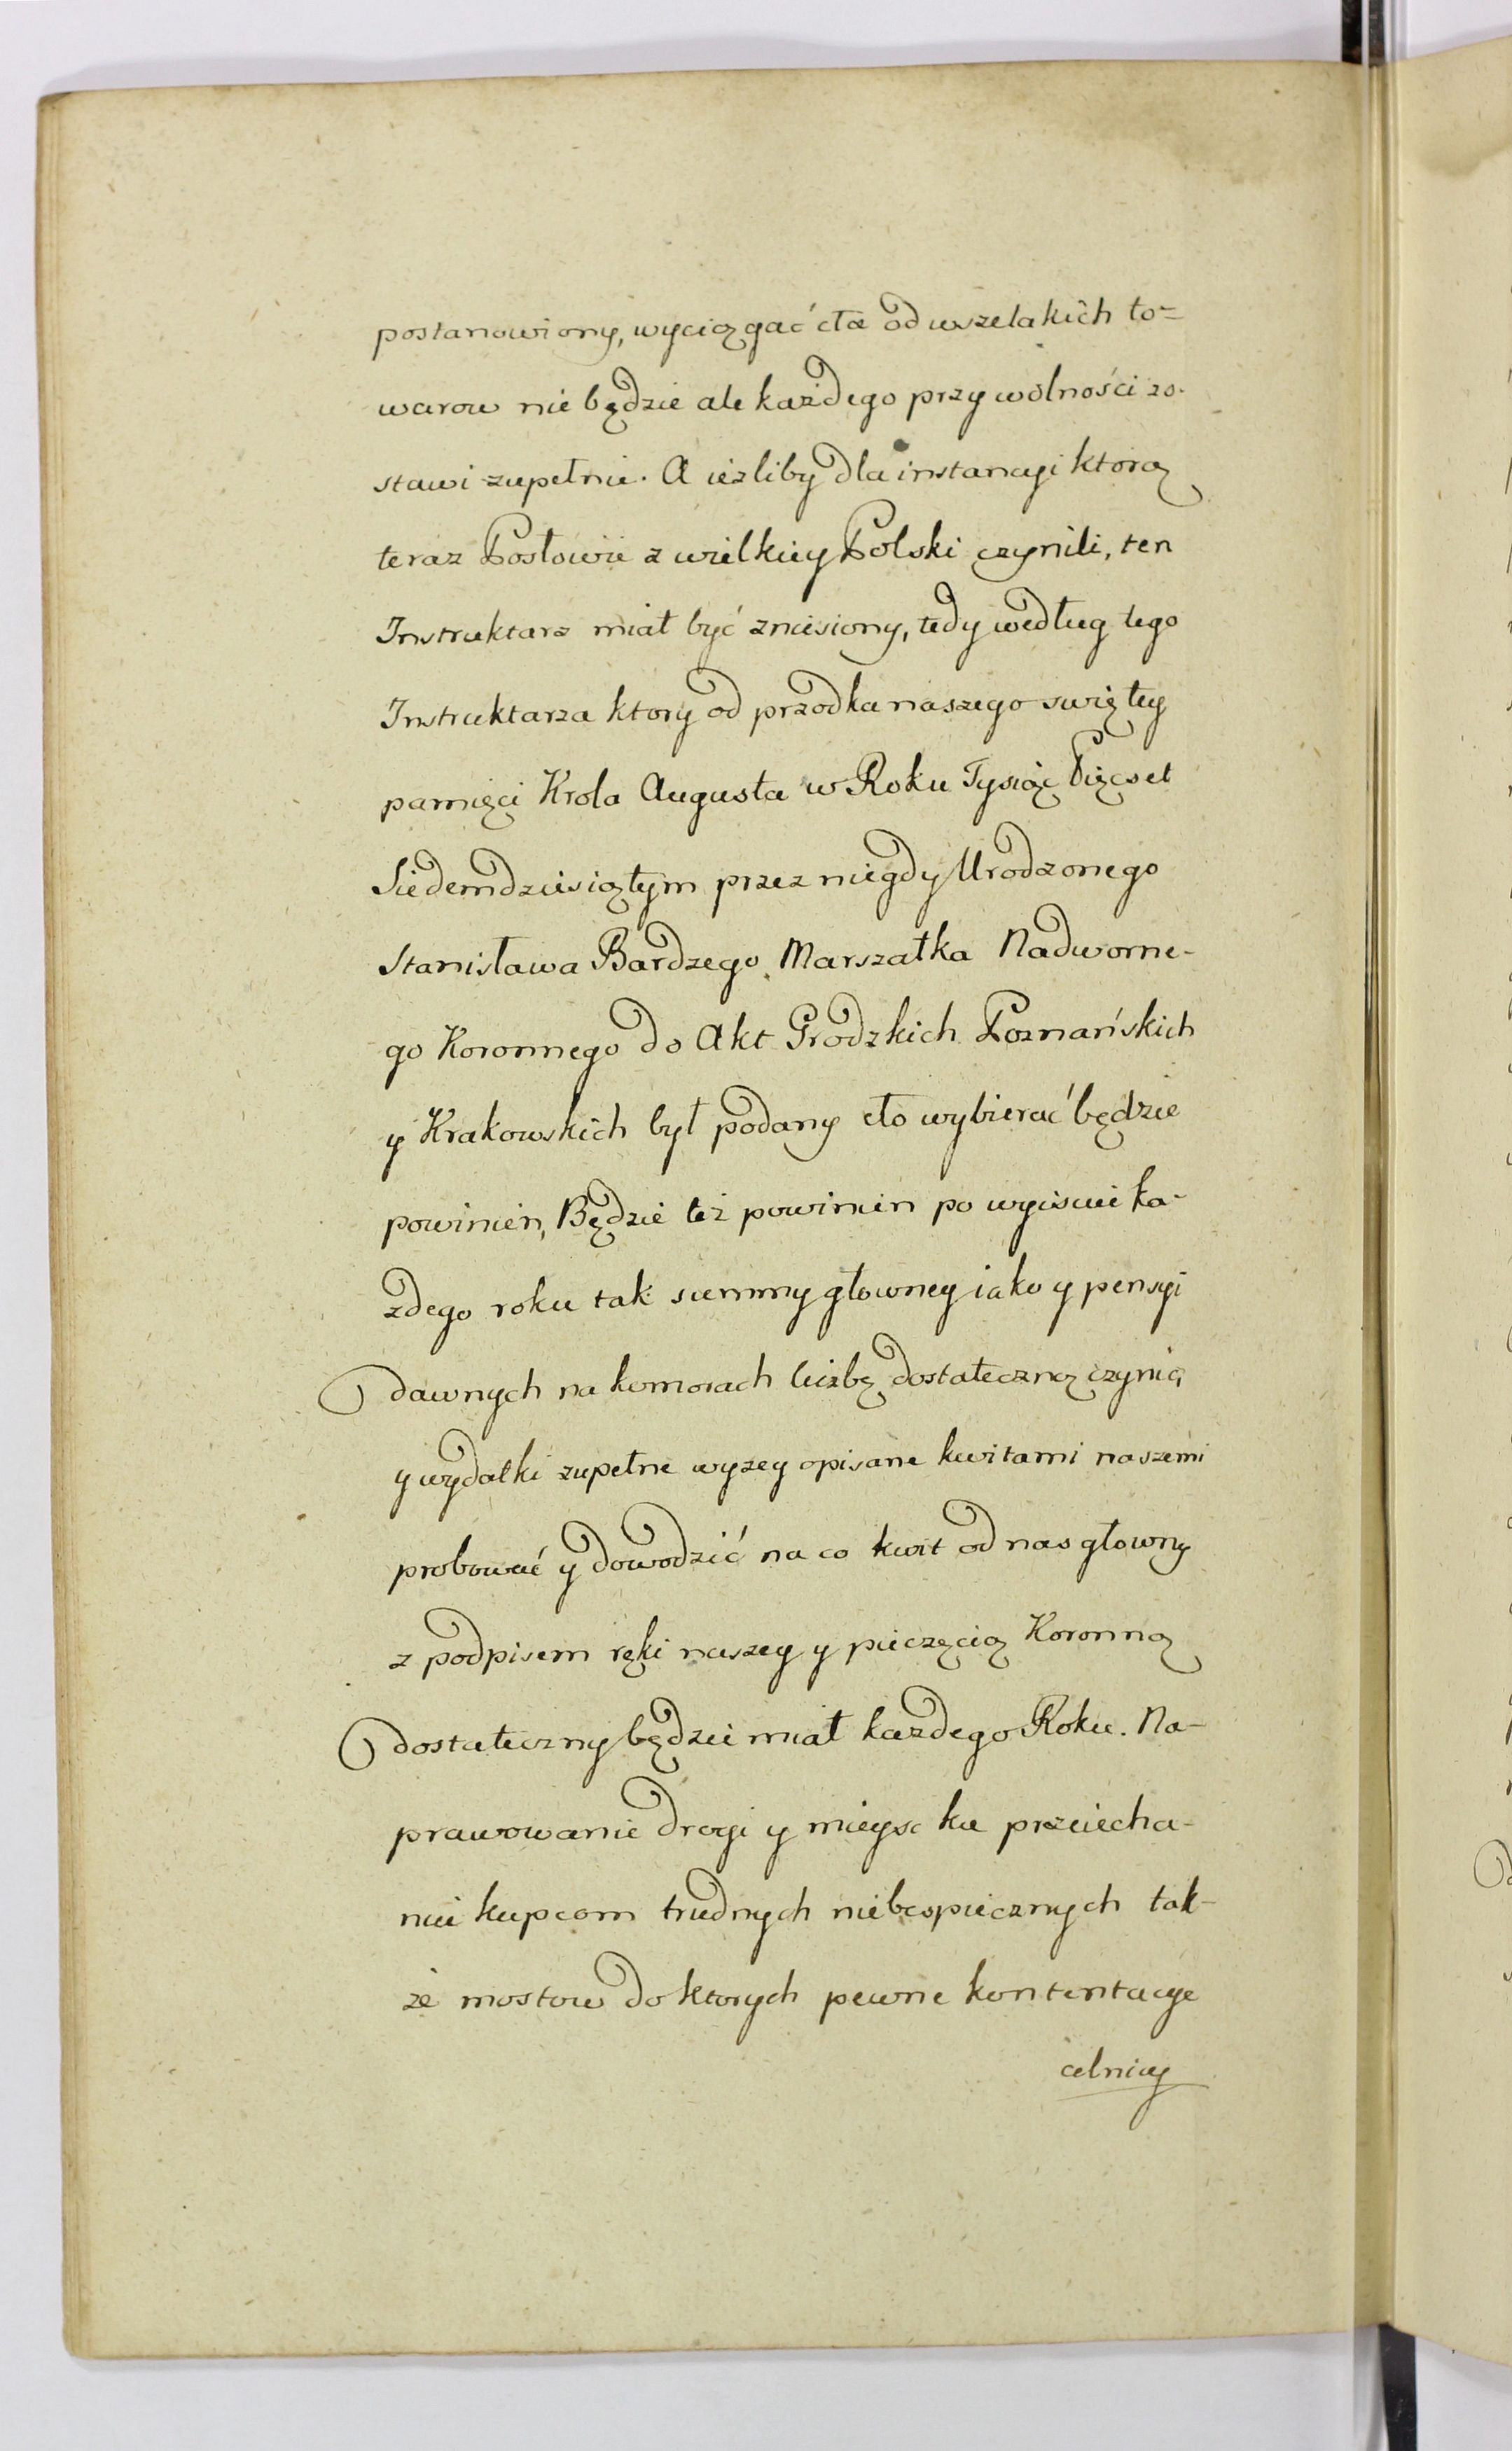 postanowiony, wyciągać cła od wszelakich to=
warow nie będzie ale każdego przy wolności zo-
stawi zupełnie. A iezliby dla instancyi ktorą
teraz Posłowie z wielkiey Polski czynili, ten
Instruktarz miał być zniesiony, tedy według tego
Instruktarza ktory od przodka naszego swiętey
pamięci Krola Augusta w Roku Tysiąc Pięcset
Siedemdziesiątym przez niegdy Urodzonego
Stanisława Bardzego Marszałka Nadworne-
go Koronnego do Akt Grodzkich Poznańskich
y Krakowskich był podany cło wybierać będzie
powinien, Będzie też powinien po wyiściu ka-
zdego roku tak summy głowney iako y pensyi
dawnych na komorach liczbę dostateczną czynić
y wydatki zupełne wyzey opisane kwitami naszemi
probować y dowodzić na co kwit od nas głowny
z podpisem ręki naszey y pieczęcią Koronną
dostateczny będzie miał kazdego Roku. Na-
prawowanie drogi y mieysc ku przeiecha-
niu kupcom trudnych niebespiecznych tak-
że mostow do ktorych pewne kontentacye
celnicy